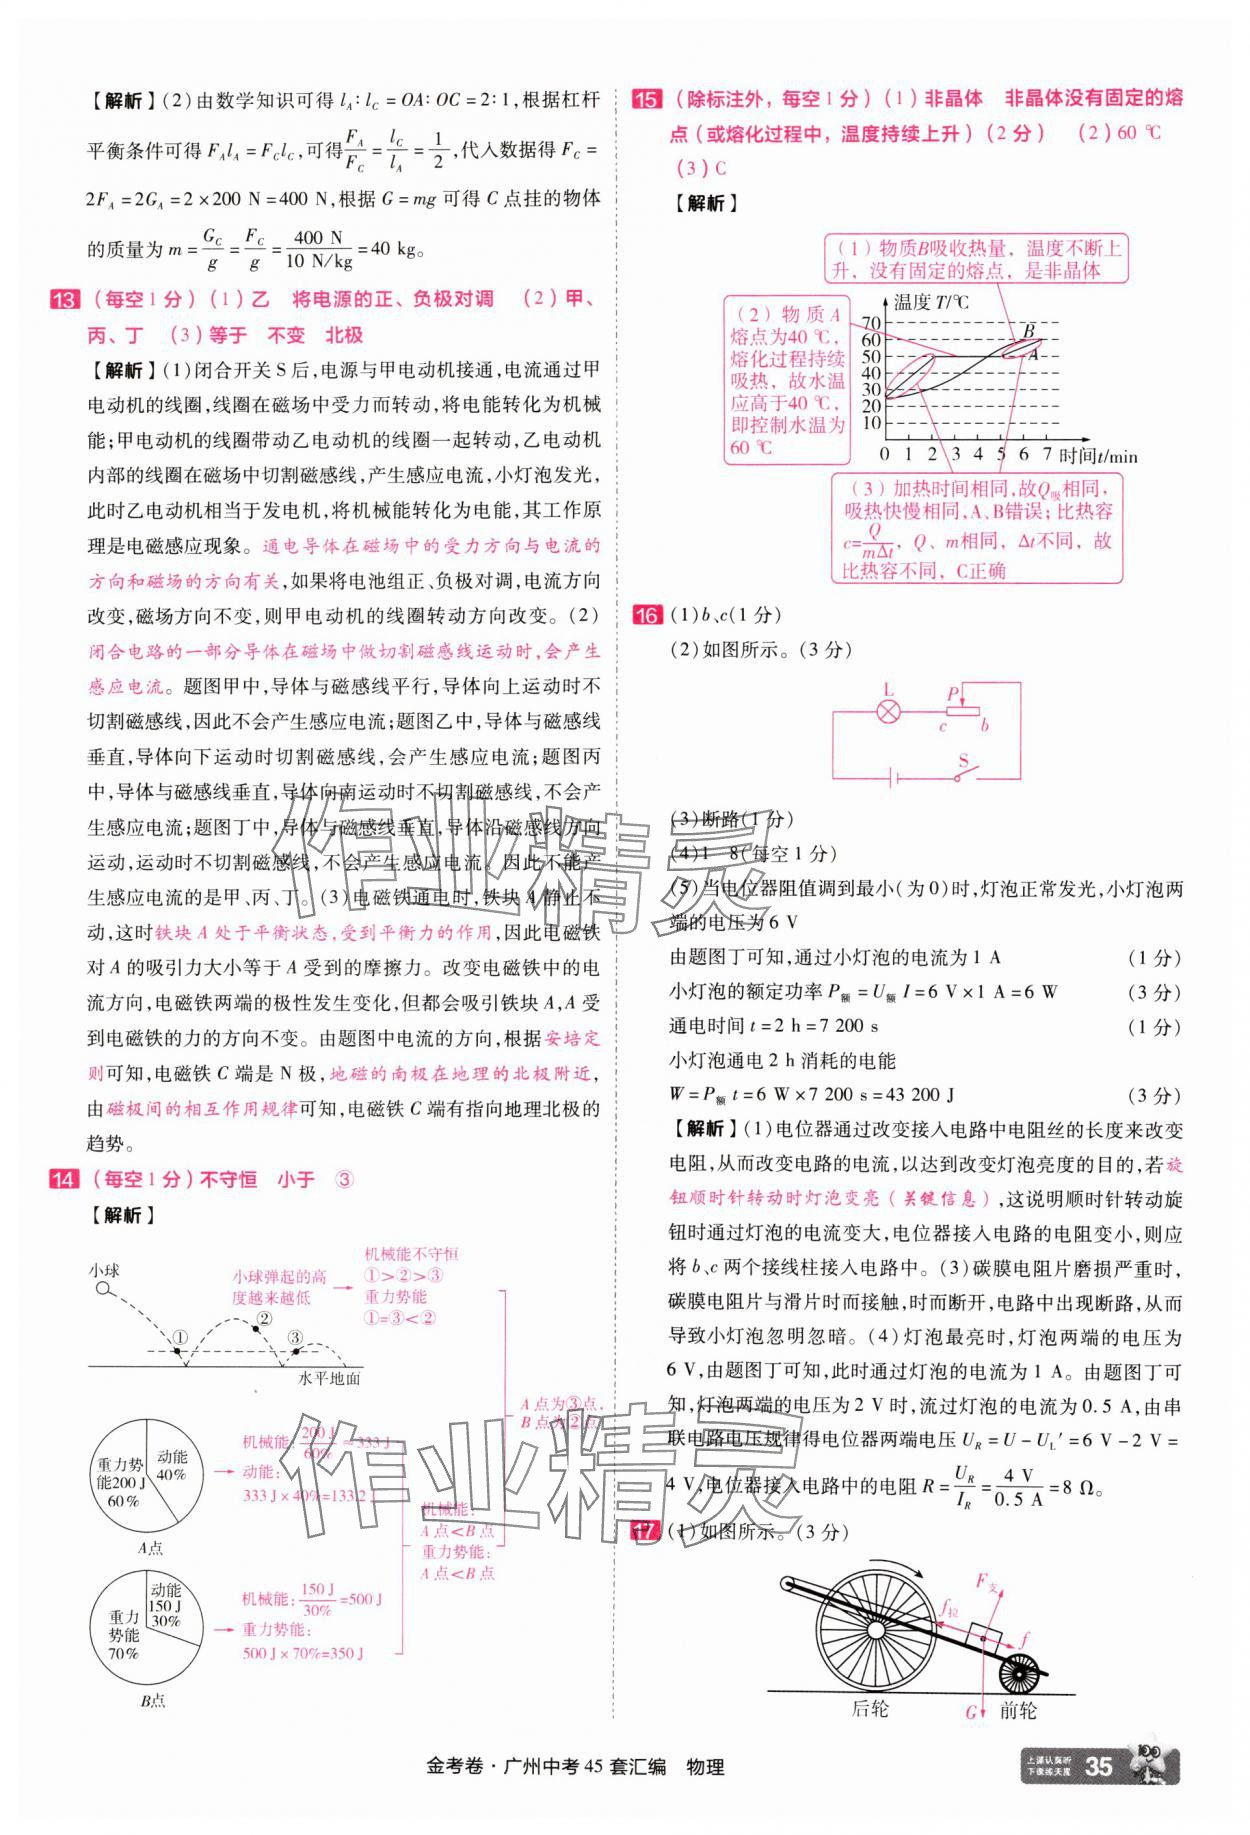 【解析】(2)由数学知识可得 lA∶lC=OA∶OC=2∶1,根据杠杆
平衡条件可得 FAlA=FClC,可得FA/FC=lC/lA=1/2,代入数据得 FC=
2FA=2GA=2×200 N=400 N,根据 G=mg 可得 C 点挂的物体
的质量为 m=GC/g=FC/g=400 N/10 N/kg=40 kg。
13 (每空1分)(1)乙 将电源的正、负极对调 (2)甲、
丙、丁 (3)等于 不变 北极
【解析】(1)闭合开关 S 后,电源与甲电动机接通,电流通过甲
电动机的线圈,线圈在磁场中受力而转动,将电能转化为机械
能;甲电动机的线圈带动乙电动机的线圈一起转动,乙电动机
内部的线圈在磁场中切割磁感线,产生感应电流,小灯泡发光,
此时乙电动机相当于发电机,将机械能转化为电能,其工作原
理是电磁感应现象。通电导体在磁场中的受力方向与电流的
方向和磁场的方向有关,如果将电池组正、负极对调,电流方向
改变,磁场方向不变,则甲电动机的线圈转动方向改变。(2)
闭合电路的一部分导体在磁场中做切割磁感线运动时,会产生
感应电流。题图甲中,导体与磁感线平行,导体向上运动时不
切割磁感线,因此不会产生感应电流;题图乙中,导体与磁感线
垂直,导体向下运动时切割磁感线,会产生感应电流;题图丙
中,导体与磁感线垂直,导体向南运动时不切割磁感线,不会产
生感应电流;题图丁中,导体与磁感线垂直,导体沿磁感线方向
运动,运动时不切割磁感线,不会产生感应电流。因此不能产
生感应电流的是甲、丙、丁。(3)电磁铁通电时,铁块 A 静止不
动,这时铁块 A 处于平衡状态,受到平衡力的作用,因此电磁铁
对 A 的吸引力大小等于 A 受到的摩擦力。改变电磁铁中的电
流方向,电磁铁两端的极性发生变化,但都会吸引铁块 A,A 受
到电磁铁的力的方向不变。由题图中电流的方向,根据安培定
则可知,电磁铁 C 端是 N 极,地磁的南极在地理的北极附近,
由磁极间的相互作用规律可知,电磁铁 C 端有指向地理北极的
趋势。
14 (每空1分)不守恒 小于 ③
【解析】
小球
小球弹起的高
度越来越低
机械能不守恒
①>②>③
重力势能
①=③<②
① ② ③
水平地面
A点为③点,
B点为②点
重力势
能200 J
60%
动能
40%
A点
机械能:200 J/60%≈333 J
动能:
333 J×40%=133.2 J
机械能:
A点<B点
重力势能:
A点<B点
重力
势能
70%
动能
150 J
30%
B点
机械能:150 J/30%=500 J
重力势能:
500 J×70%=350 J
15 (除标注外,每空1分)(1)非晶体 非晶体没有固定的熔
点(或熔化过程中,温度持续上升)(2分) (2)60 ℃
(3)C
【解析】
(1)物质B吸收热量,温度不断上
升,没有固定的熔点,是非晶体
(2)物质A
熔点为40 ℃,
熔化过程持续
吸热,故水温
应高于40 ℃,
即控制水温为
60 ℃
温度 T/℃
70
60
50
40
30
20
10
B
A
0 1 2 3 4 5 6 7 时间t/min
(3)加热时间相同,故Q吸相同,
吸热快慢相同,A、B错误;比热容
c=Q/mΔt,Q、m相同,Δt不同,故
比热容不同,C正确
16 (1)b、c(1分)
(2)如图所示。(3分)
L P
c b
S
(3)断路(1分)
(4)1 8(每空1分)
(5)当电位器阻值调到最小(为0)时,灯泡正常发光,小灯泡两
端的电压为 6 V
由题图丁可知,通过小灯泡的电流为 1 A (1分)
小灯泡的额定功率 P额=U额 I=6 V×1 A=6 W (3分)
通电时间 t=2 h=7 200 s (1分)
小灯泡通电 2 h 消耗的电能
W=P额 t=6 W×7 200 s=43 200 J (3分)
【解析】(1)电位器通过改变接入电路中电阻丝的长度来改变
电阻,从而改变电路的电流,以达到改变灯泡亮度的目的,若旋
钮顺时针转动时灯泡变亮(关键信息),这说明顺时针转动旋
钮时通过灯泡的电流变大,电位器接入电路的电阻变小,则应
将 b、c 两个接线柱接入电路中。(3)碳膜电阻片磨损严重时,
碳膜电阻片与滑片时而接触,时而断开,电路中出现断路,从而
导致小灯泡忽明忽暗。(4)灯泡最亮时,灯泡两端的电压为
6 V,由题图丁可知,此时通过灯泡的电流为 1 A。由题图丁可
知,灯泡两端的电压为 2 V 时,流过灯泡的电流为 0.5 A,由串
联电路电压规律得电位器两端电压 UR=U-UL′=6 V-2 V=
4 V,电位器接入电路中的电阻 R=UR/IR=4 V/0.5 A=8 Ω。
17 (1)如图所示。(3分)
F支
f拉
f
G
后轮
前轮
金考卷·广州中考 45 套汇编 物理
上课认真听
下课练天度
35
作业精灵
作业精灵